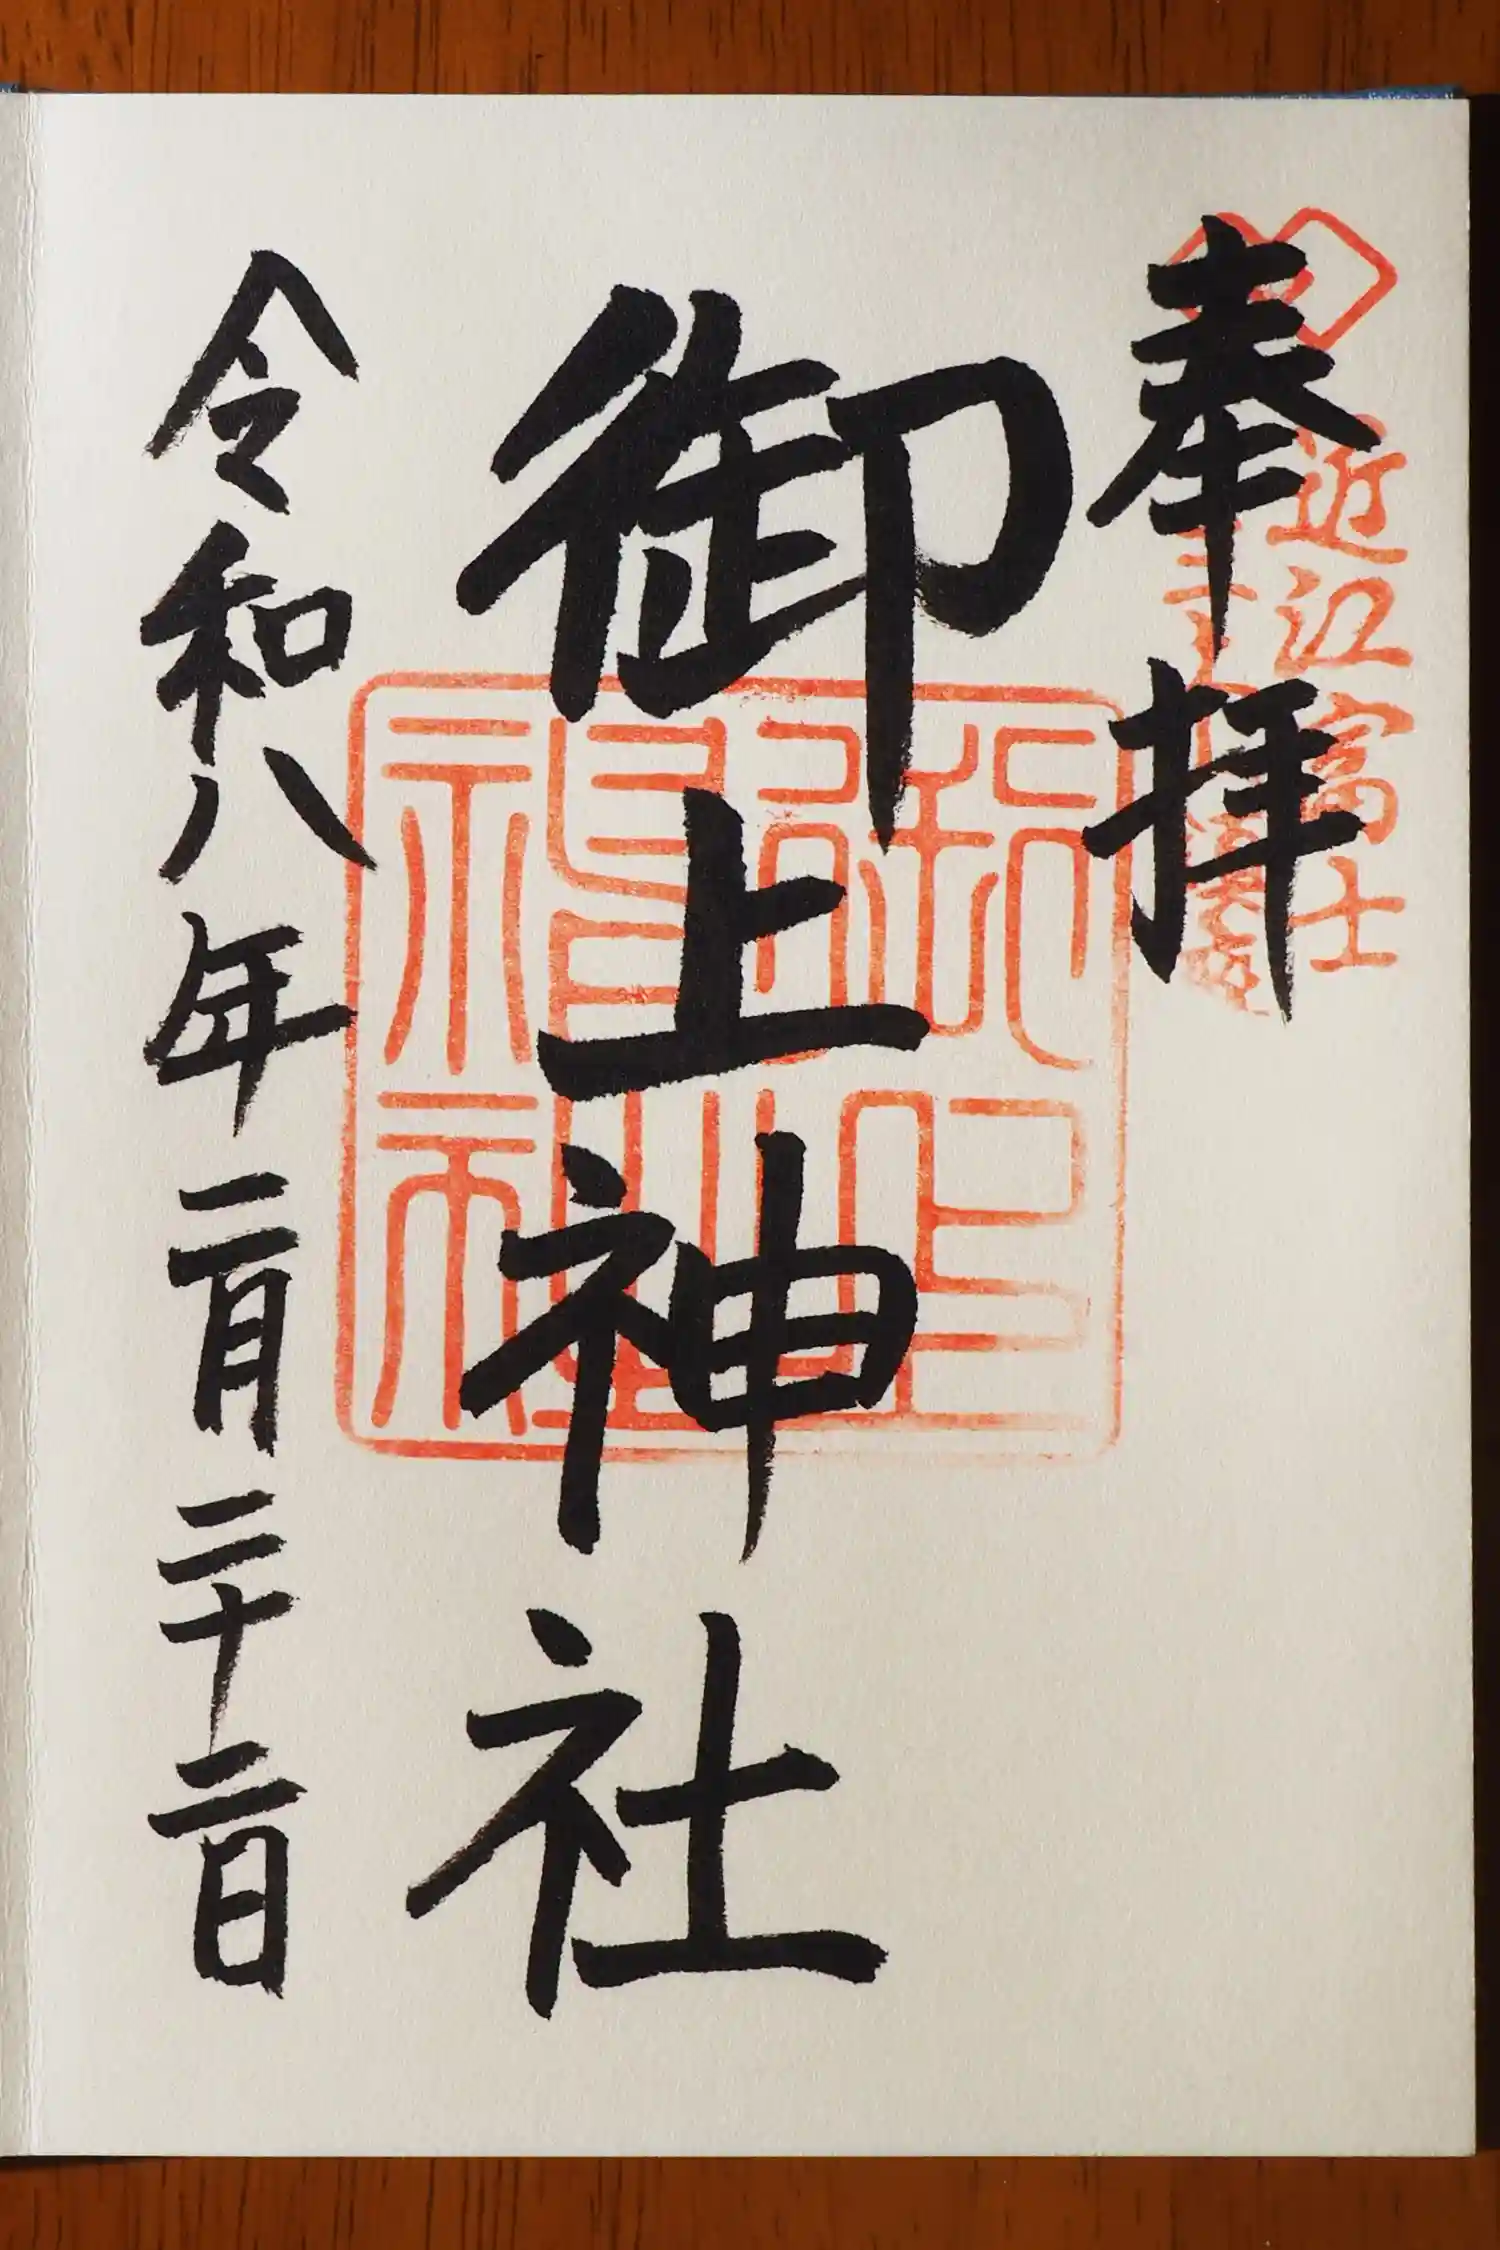 奉拝
近江富士
御上神社
令和八年二月二十二日